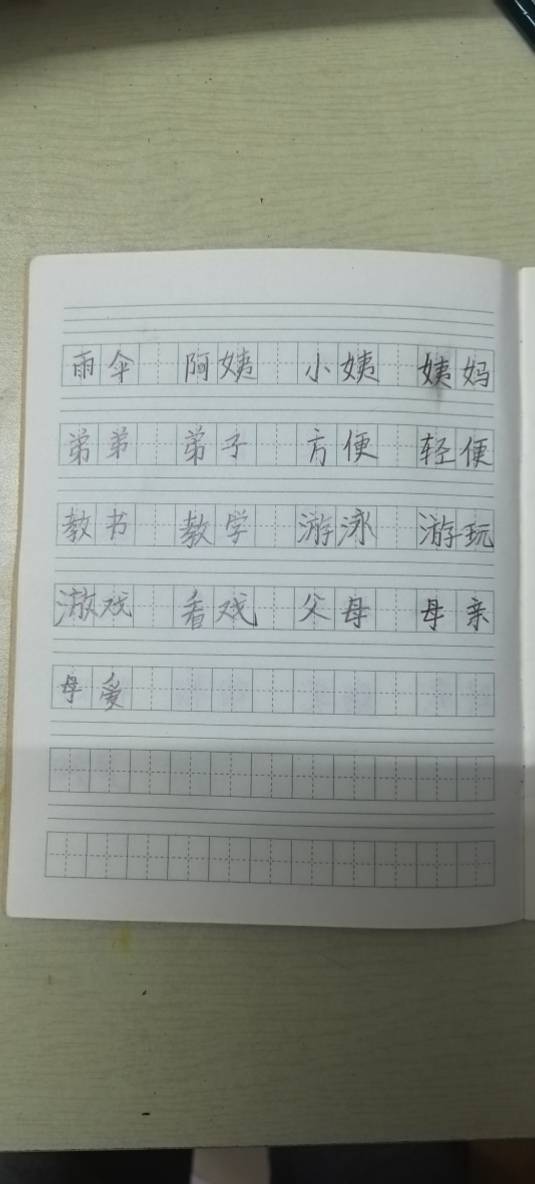 雨伞 阿姨 小姨 姨妈
弟弟 弟子 方便 轻便
教书 教学 游泳 游玩
游戏 看戏 父母 母亲
母爱